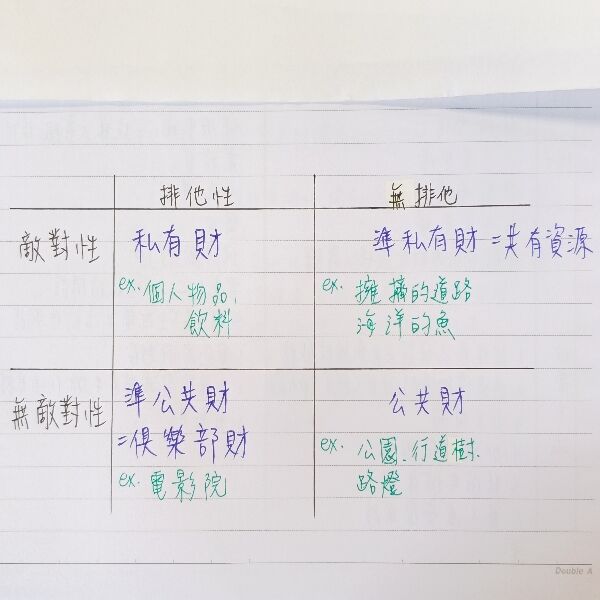 排他性 無排他
敵對性 私有財 準私有財=共有資源
ex. 個人物品、 ex. 擁擠的道路
飲料 海洋的魚
無敵對性 準公共財 公共財
=俱樂部財 ex. 公園、行道樹、
ex. 電影院 路燈
Double A